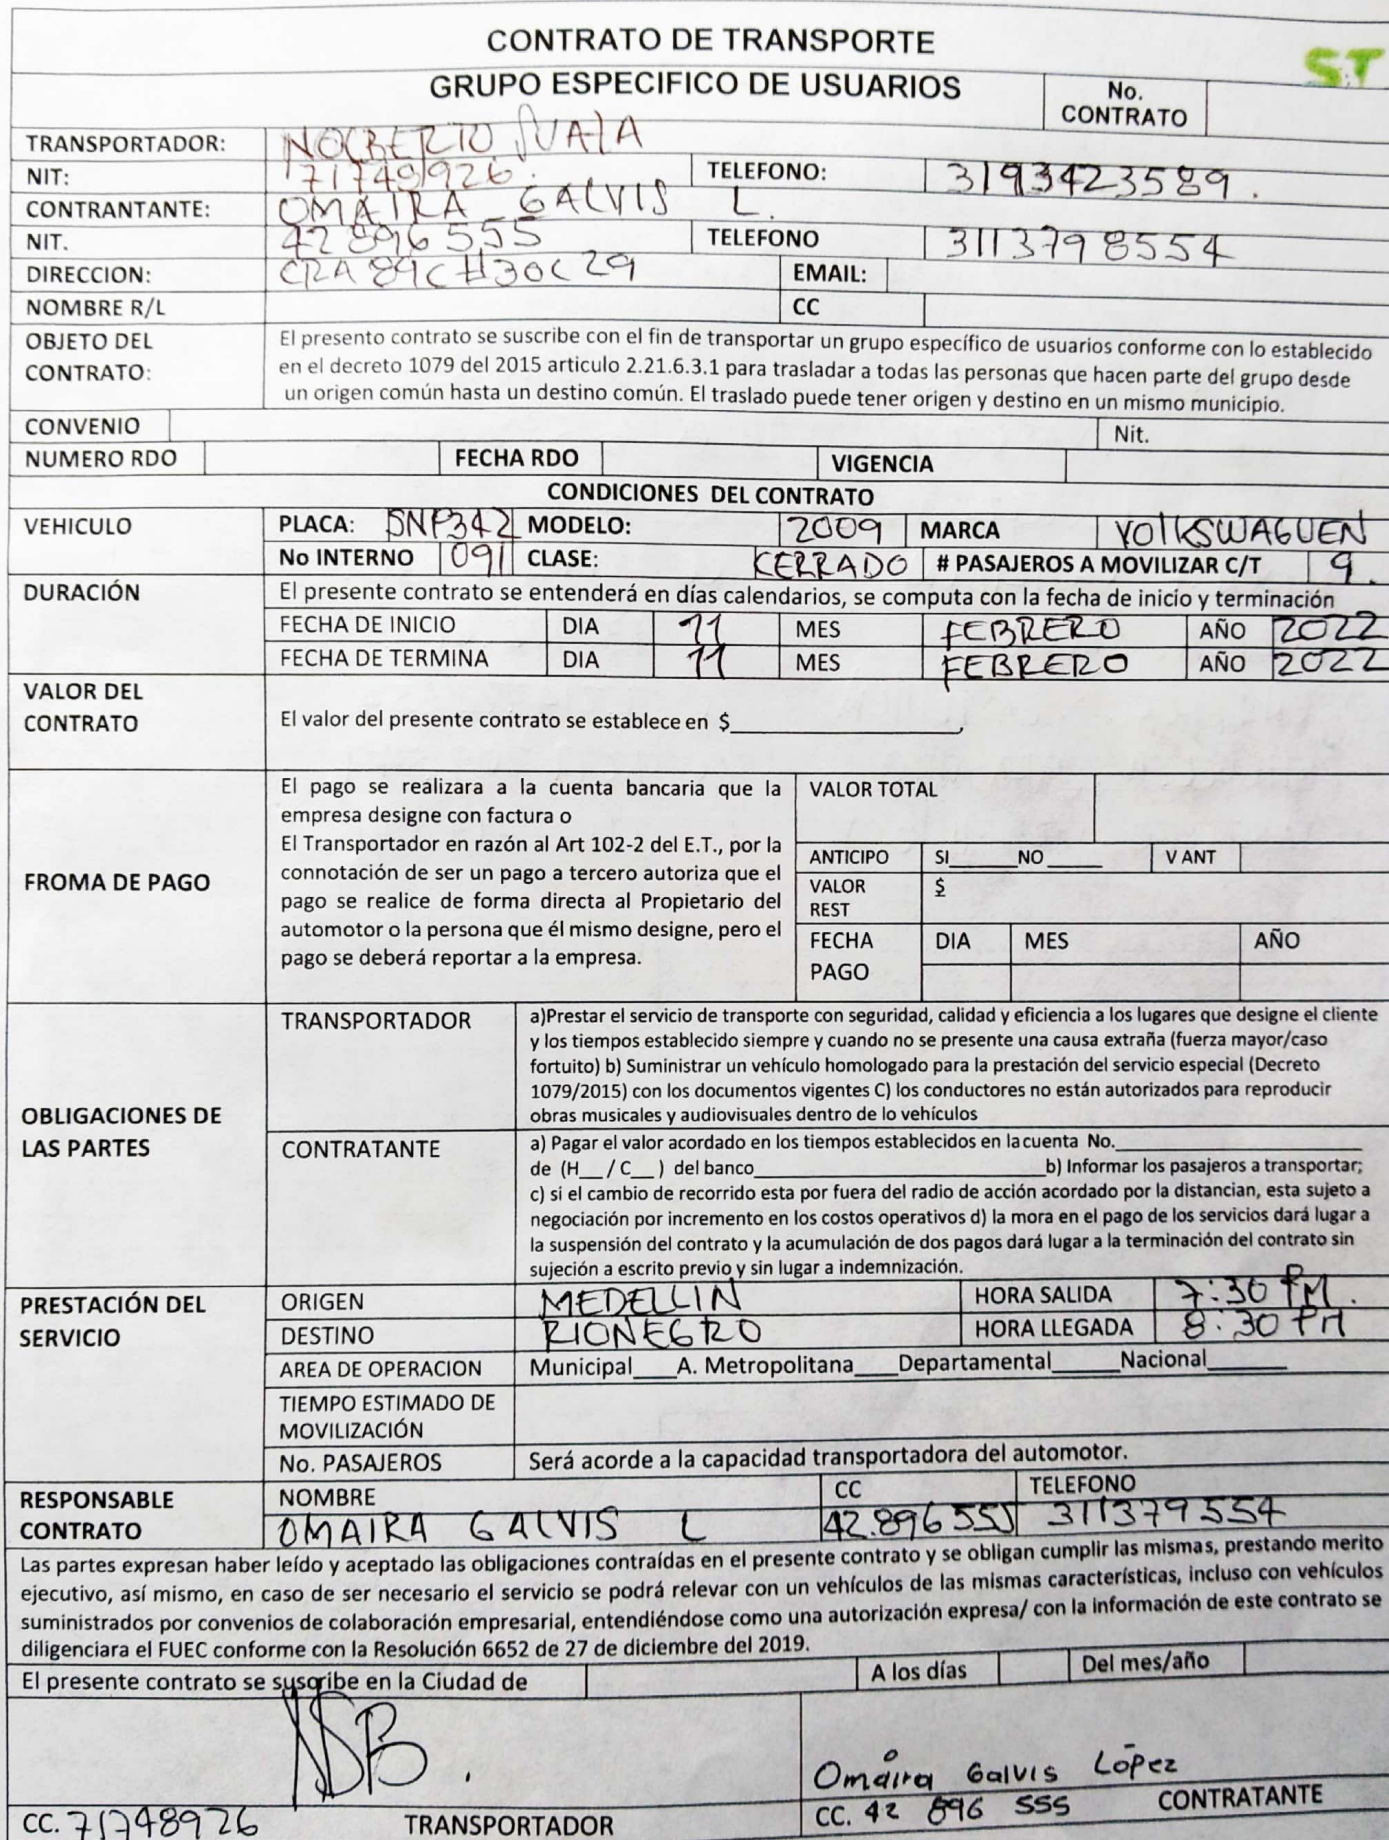 CONTRATO DE TRANSPORTE
ST
GRUPO ESPECIFICO DE USUARIOS
No. CONTRATO
TRANSPORTADOR: NOLBERTO
NIT: 71748926. TELEFONO: 3193423589.
CONTRANTANTE: OMAIRA GALVIS L.
NIT. 42 896 555 TELEFONO 3113798554
DIRECCION: CRA 89C #30C 29 EMAIL:
NOMBRE R/L CC
OBJETO DEL CONTRATO:
El presento contrato se suscribe con el fin de transportar un grupo específico de usuarios conforme con lo establecido
en el decreto 1079 del 2015 articulo 2.21.6.3.1 para trasladar a todas las personas que hacen parte del grupo desde
un origen común hasta un destino común. El traslado puede tener origen y destino en un mismo municipio.
CONVENIO Nit.
NUMERO RDO FECHA RDO VIGENCIA
CONDICIONES DEL CONTRATO
VEHICULO PLACA: SNP342 MODELO: 2009 MARCA VOlKSWAGUEN
No INTERNO 091 CLASE: CERRADO # PASAJEROS A MOVILIZAR C/T 9.
DURACIÓN El presente contrato se entenderá en días calendarios, se computa con la fecha de inicio y terminación
FECHA DE INICIO DIA 11 MES FEBRERO AÑO 2022
FECHA DE TERMINA DIA 11 MES FEBRERO AÑO 2022
VALOR DEL CONTRATO
El valor del presente contrato se establece en $______________,
FROMA DE PAGO
El pago se realizara a la cuenta bancaria que la
empresa designe con factura o
El Transportador en razón al Art 102-2 del E.T., por la
connotación de ser un pago a tercero autoriza que el
pago se realice de forma directa al Propietario del
automotor o la persona que él mismo designe, pero el
pago se deberá reportar a la empresa.
VALOR TOTAL
ANTICIPO SI______NO_____ V ANT
VALOR REST $
FECHA PAGO DIA MES AÑO
OBLIGACIONES DE LAS PARTES
TRANSPORTADOR
a)Prestar el servicio de transporte con seguridad, calidad y eficiencia a los lugares que designe el cliente
y los tiempos establecido siempre y cuando no se presente una causa extraña (fuerza mayor/caso
fortuito) b) Suministrar un vehículo homologado para la prestación del servicio especial (Decreto
1079/2015) con los documentos vigentes C) los conductores no están autorizados para reproducir
obras musicales y audiovisuales dentro de lo vehículos
CONTRATANTE
a) Pagar el valor acordado en los tiempos establecidos en la cuenta No.____________________
de (H__ / C__ ) del banco________________________b) Informar los pasajeros a transportar;
c) si el cambio de recorrido esta por fuera del radio de acción acordado por la distancian, esta sujeto a
negociación por incremento en los costos operativos d) la mora en el pago de los servicios dará lugar a
la suspensión del contrato y la acumulación de dos pagos dará lugar a la terminación del contrato sin
sujeción a escrito previo y sin lugar a indemnización.
PRESTACIÓN DEL SERVICIO
ORIGEN MEDELLIN HORA SALIDA 7:30 PM.
DESTINO RIONEGRO HORA LLEGADA 8:30 PM
AREA DE OPERACION Municipal___A. Metropolitana___Departamental_____Nacional______
TIEMPO ESTIMADO DE MOVILIZACIÓN
No. PASAJEROS Será acorde a la capacidad transportadora del automotor.
RESPONSABLE CONTRATO NOMBRE CC TELEFONO
OMAIRA GALVIS L 42.896 555 311379554
Las partes expresan haber leído y aceptado las obligaciones contraídas en el presente contrato y se obligan cumplir las mismas, prestando merito
ejecutivo, así mismo, en caso de ser necesario el servicio se podrá relevar con un vehículos de las mismas características, incluso con vehículos
suministrados por convenios de colaboración empresarial, entendiéndose como una autorización expresa/ con la información de este contrato se
diligenciara el FUEC conforme con la Resolución 6652 de 27 de diciembre del 2019.
El presente contrato se suscribe en la Ciudad de A los días Del mes/año
NSB.
Omaira Galvis López
CC. 71748926 TRANSPORTADOR
CC. 42 896 555 CONTRATANTE